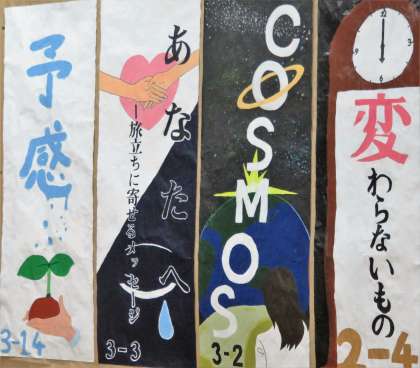 予感
3-14
あなたへ
ー旅立ちに寄せるメッセージ
3-3
COSMOS
3-2
変わらないもの
2-4